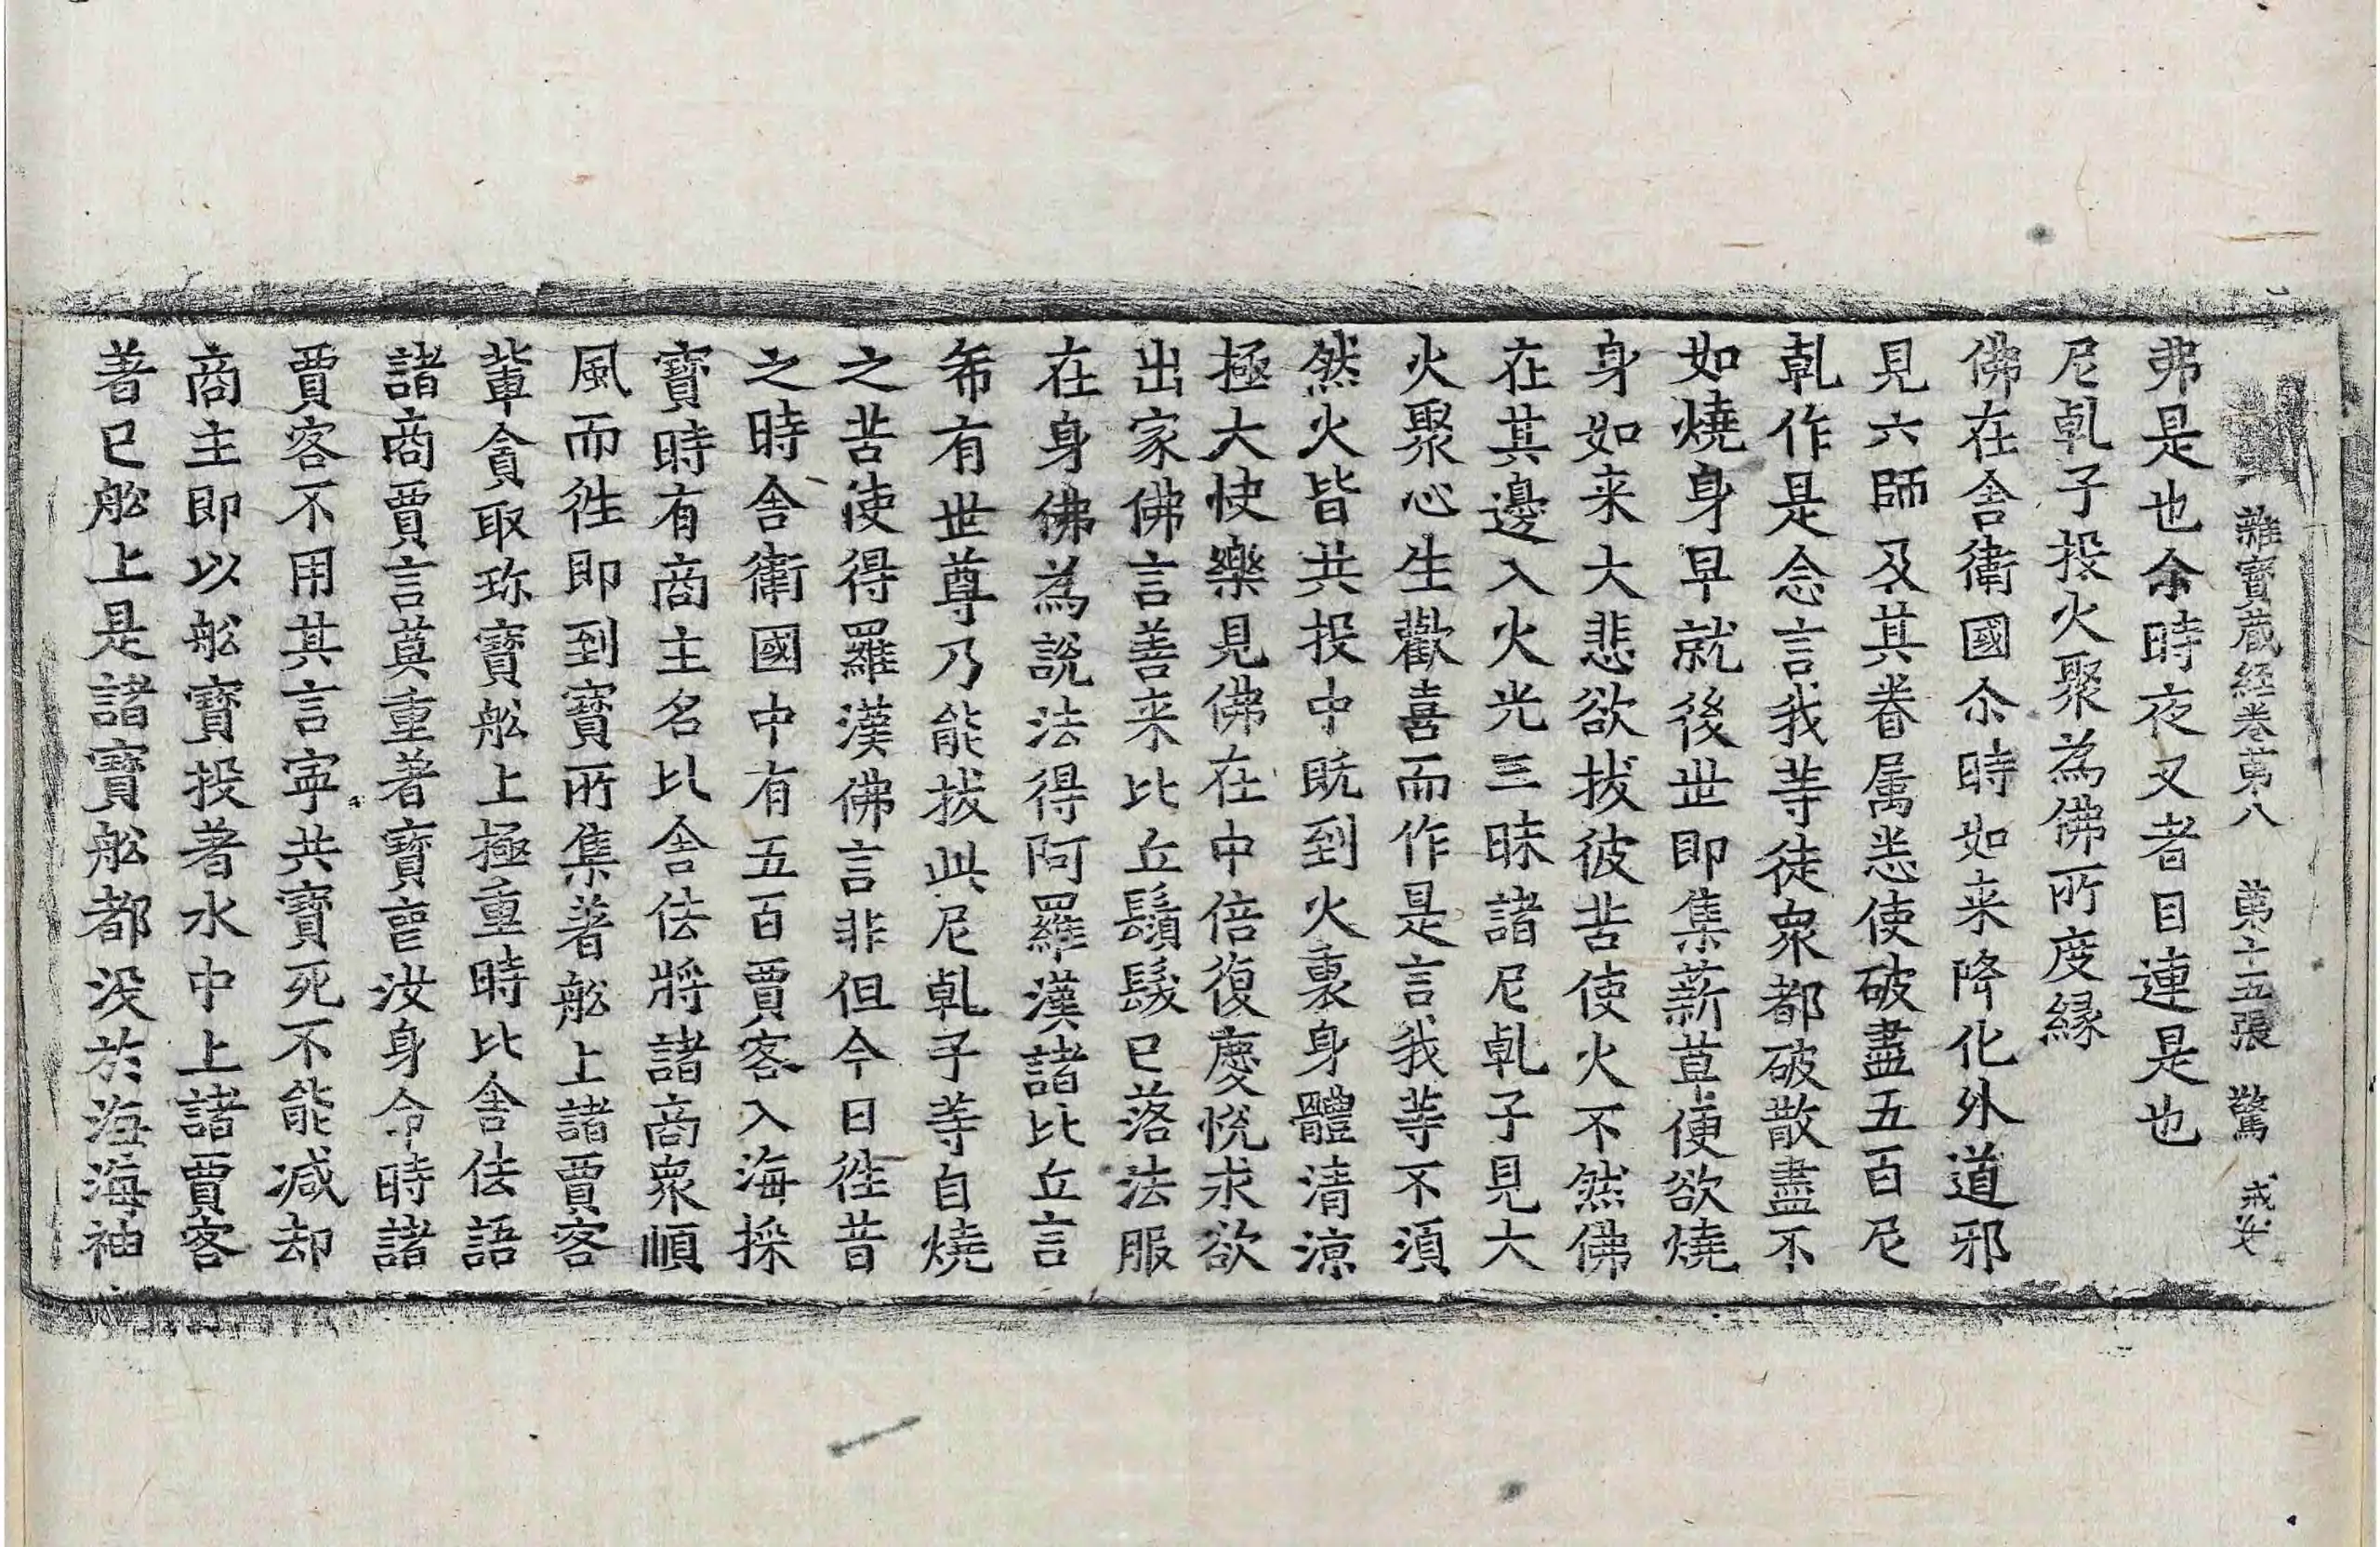 雜寶藏經卷苐八 苐十五張 驚 戒安
弗是也尒時夜叉者目連是也
尼乹子投火聚為佛所度縁
佛在舍衛國尒時如来降化外道邪
見六師及其眷属悉使破盡五百尼
乹作是念言我䓁徒衆都破散盡不
如燒身早就後世即集薪草便欲燒
身如来大悲欲拔彼苦使火不然佛
在其邊入火光三昧諸尼乹子見大
火聚心生歡喜而作是言我䓁不湏
然火皆共投中旣到火裏身體清涼
極大快樂見佛在中倍復慶悅求欲
出家佛言善来比丘鬚髮已落法服
在身佛為說法得阿羅漢諸比丘言
希有世尊乃能拔此尼乹子䓁自燒
之苦使得羅漢佛言非但今日徃昔
之時舍衛國中有五百賈客入海採
寶時有商主名比舍佉將諸商衆順
風而徃即到寶所集著舩上諸賈客
輩貪取珎寶舩上極重時比舍佉語
諸商賈言莫重著寶䘮汝身命時諸
賈客不用其言寧共寶死不能减却
商主即以舩寶投著水中上諸賈客
著已舩上是諸寶舩都没於海海神